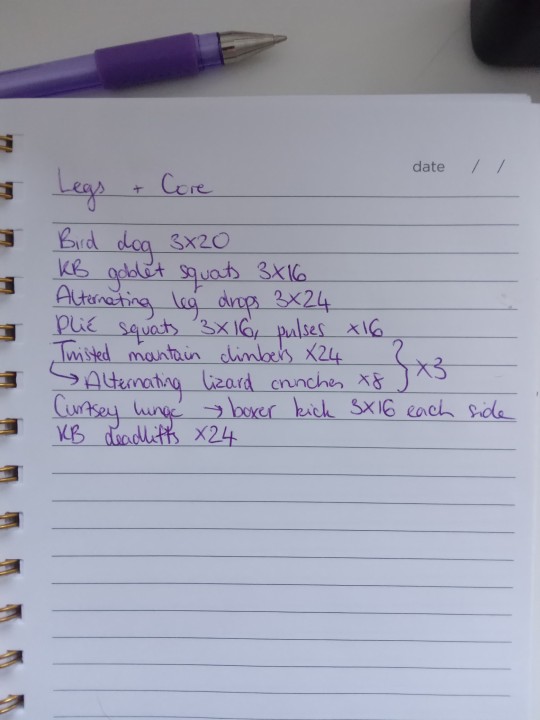 date / /
Legs + Core
Bird dog 3x20
KB goblet squats 3x16
Alternating leg drops 3x24
Plié squats 3x16, pulses x16
Twisted mountain climbers x24
→ Alternating lizard crunches x8 } x3
Curtsey lunge → boxer kick 3x16 each side
KB deadlifts x24